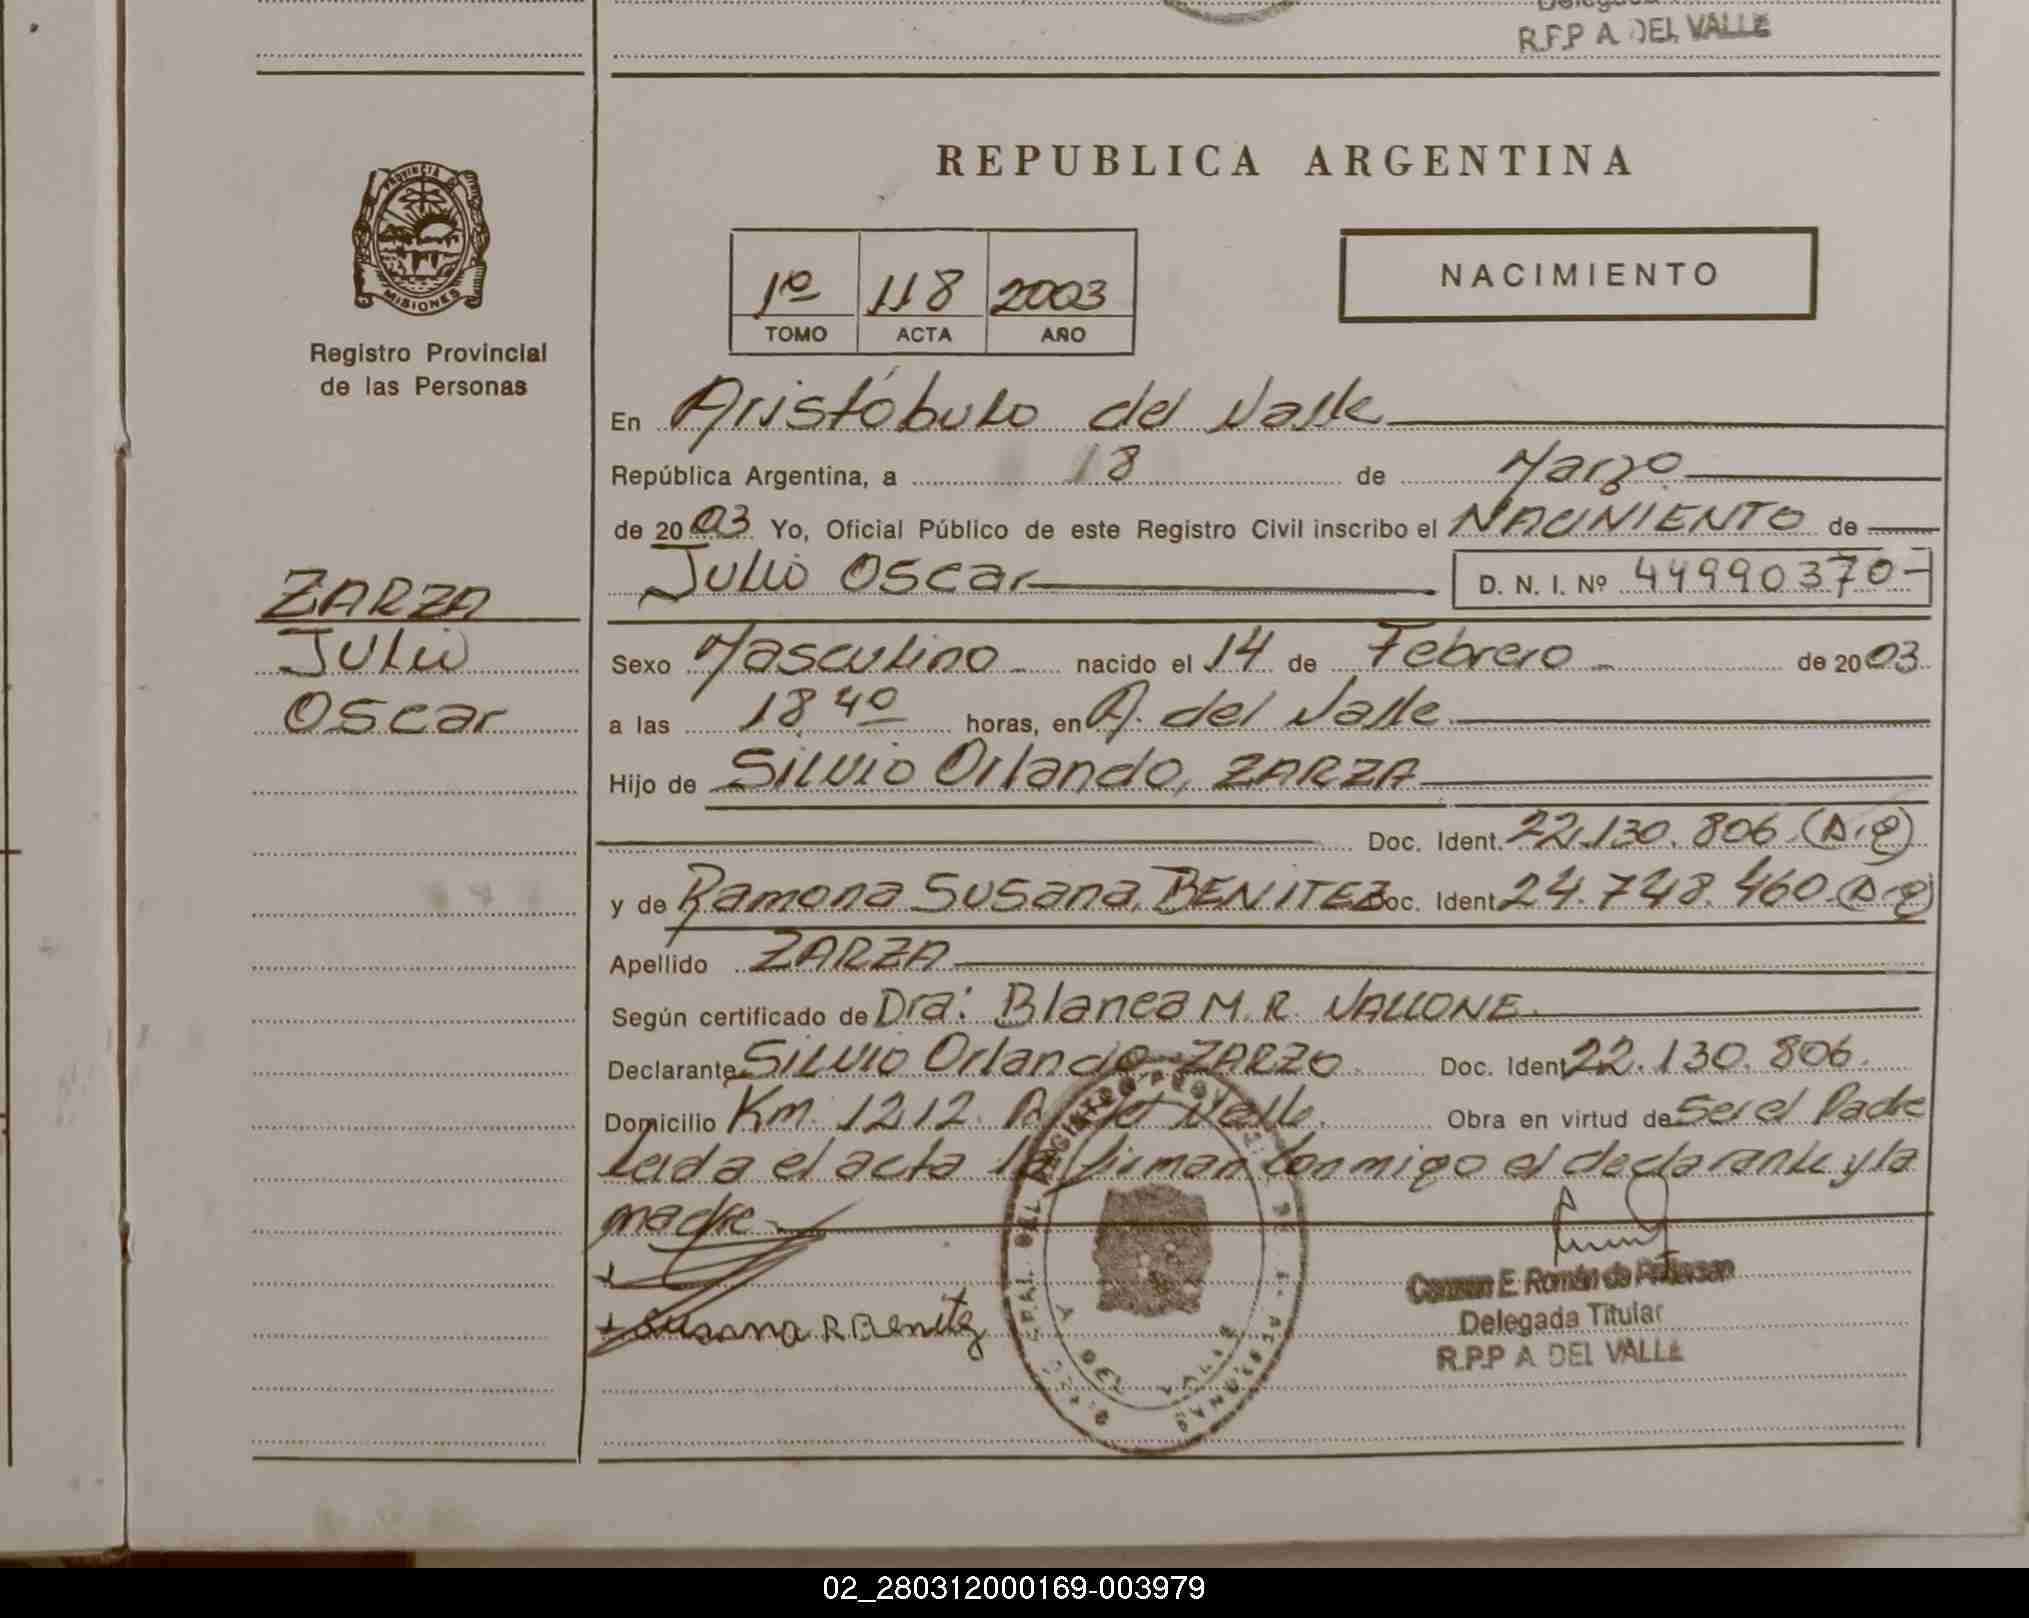 R.P.P A DEL VALLE
PROVINCIA DE
MISIONES
Registro Provincial
de las Personas
ZARZA
Julio
Oscar
REPUBLICA ARGENTINA
1º 118 2003
TOMO ACTA AÑO
NACIMIENTO
En Aristóbulo del Valle
República Argentina, a 18 de Marzo
de 2003 Yo, Oficial Público de este Registro Civil inscribo el NACIMIENTO de
Julio Oscar D. N. I. Nº 44990370-
Sexo Masculino nacido el 14 de Febrero de 2003
a las 18,40 horas, en A. del Valle
Hijo de Silvio Orlando, ZARZA
Doc. Ident. 22.130.806
y de Ramona Susana, BENITEZ Doc. Ident. 24.748.460
Apellido ZARZA
Según certificado de Dra: Blanca M. R. VALLONE.
Declarante Silvio Orlando ZARZO. Doc. Ident 22.130.806.
Domicilio Km. 1212. A. del Valle. Obra en virtud de Ser el Padre
Leida el acta la firman conmigo el declarante y la
madre.
Susana R Benitez
Carmen E. Román de
Delegada Titular
R.P.P A DEL VALLE
02_280312000169-003979